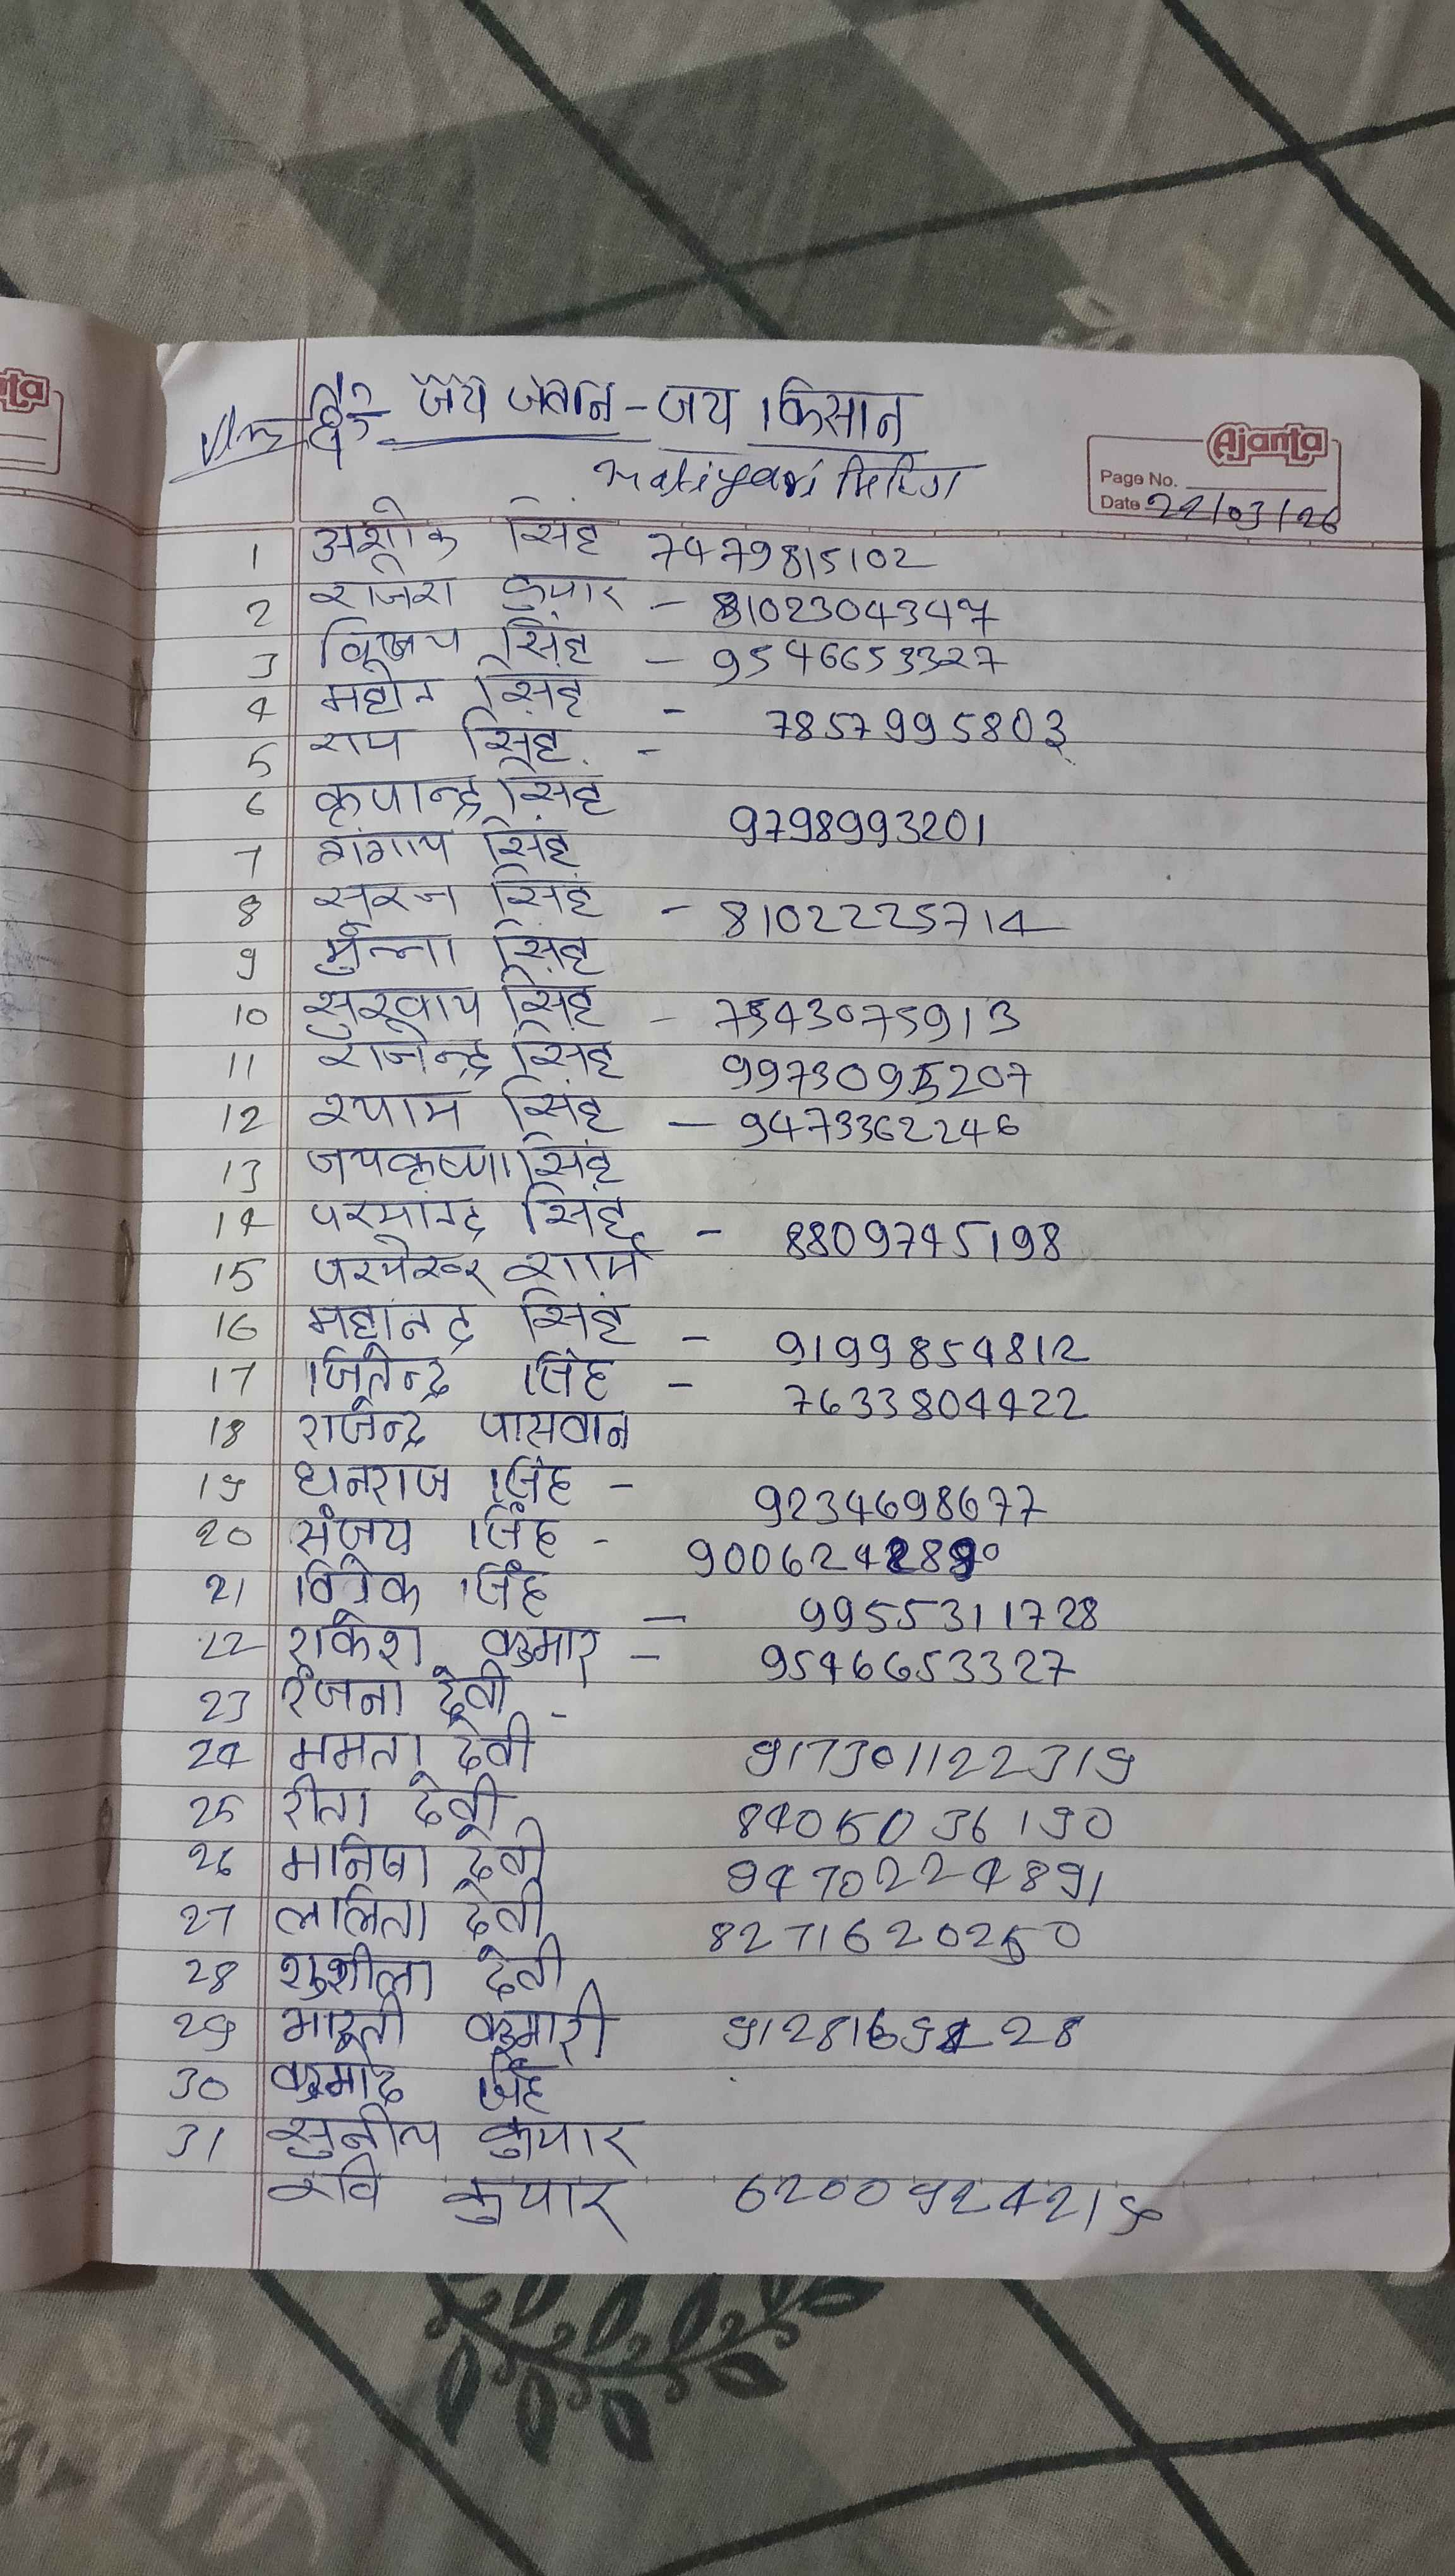 जय जवान - जय किसान
मिटिंग
Ajanta
Page No.
Date 22/03/26
1 अशोक सिंह 7479815102
2 राजेश कुमार - 8102304347
3 विजय सिंह - 9546653327
4 सिंह - 7857995803
5 राम सिंह -
6 कृपान्द्र सिंह
7 सिंह 9798993201
8 सुरज सिंह - 8102225714
9 मुन्ना सिंह
10 सिंह - 7543075913
11 राजेन्द्र सिंह 9973095207
12 श्याम सिंह - 9473362246
13 जयकृष्णा सिंह
14 परमानन्द सिंह - 8809745198
15 शर्मा
16 महानन्द सिंह - 9199854812
17 जितेन्द्र सिंह - 7633804422
18 राजेन्द्र पासवान
19 धनराज सिंह - 9234698677
20 संजय सिंह -
21 विवेक सिंह - 9955311728
22 राकेश कुमार - 9546653327
23 रंजना देवी -
24 ममता देवी 917301122319
25 रीता देवी 8405036190
26 मनिषा देवी 9470224891
27 ललिता देवी 8271620250
28 शुशीला देवी
29 भारती कुमारी
30 सिंह
31 कुमार
रवि कुमार 6200924219